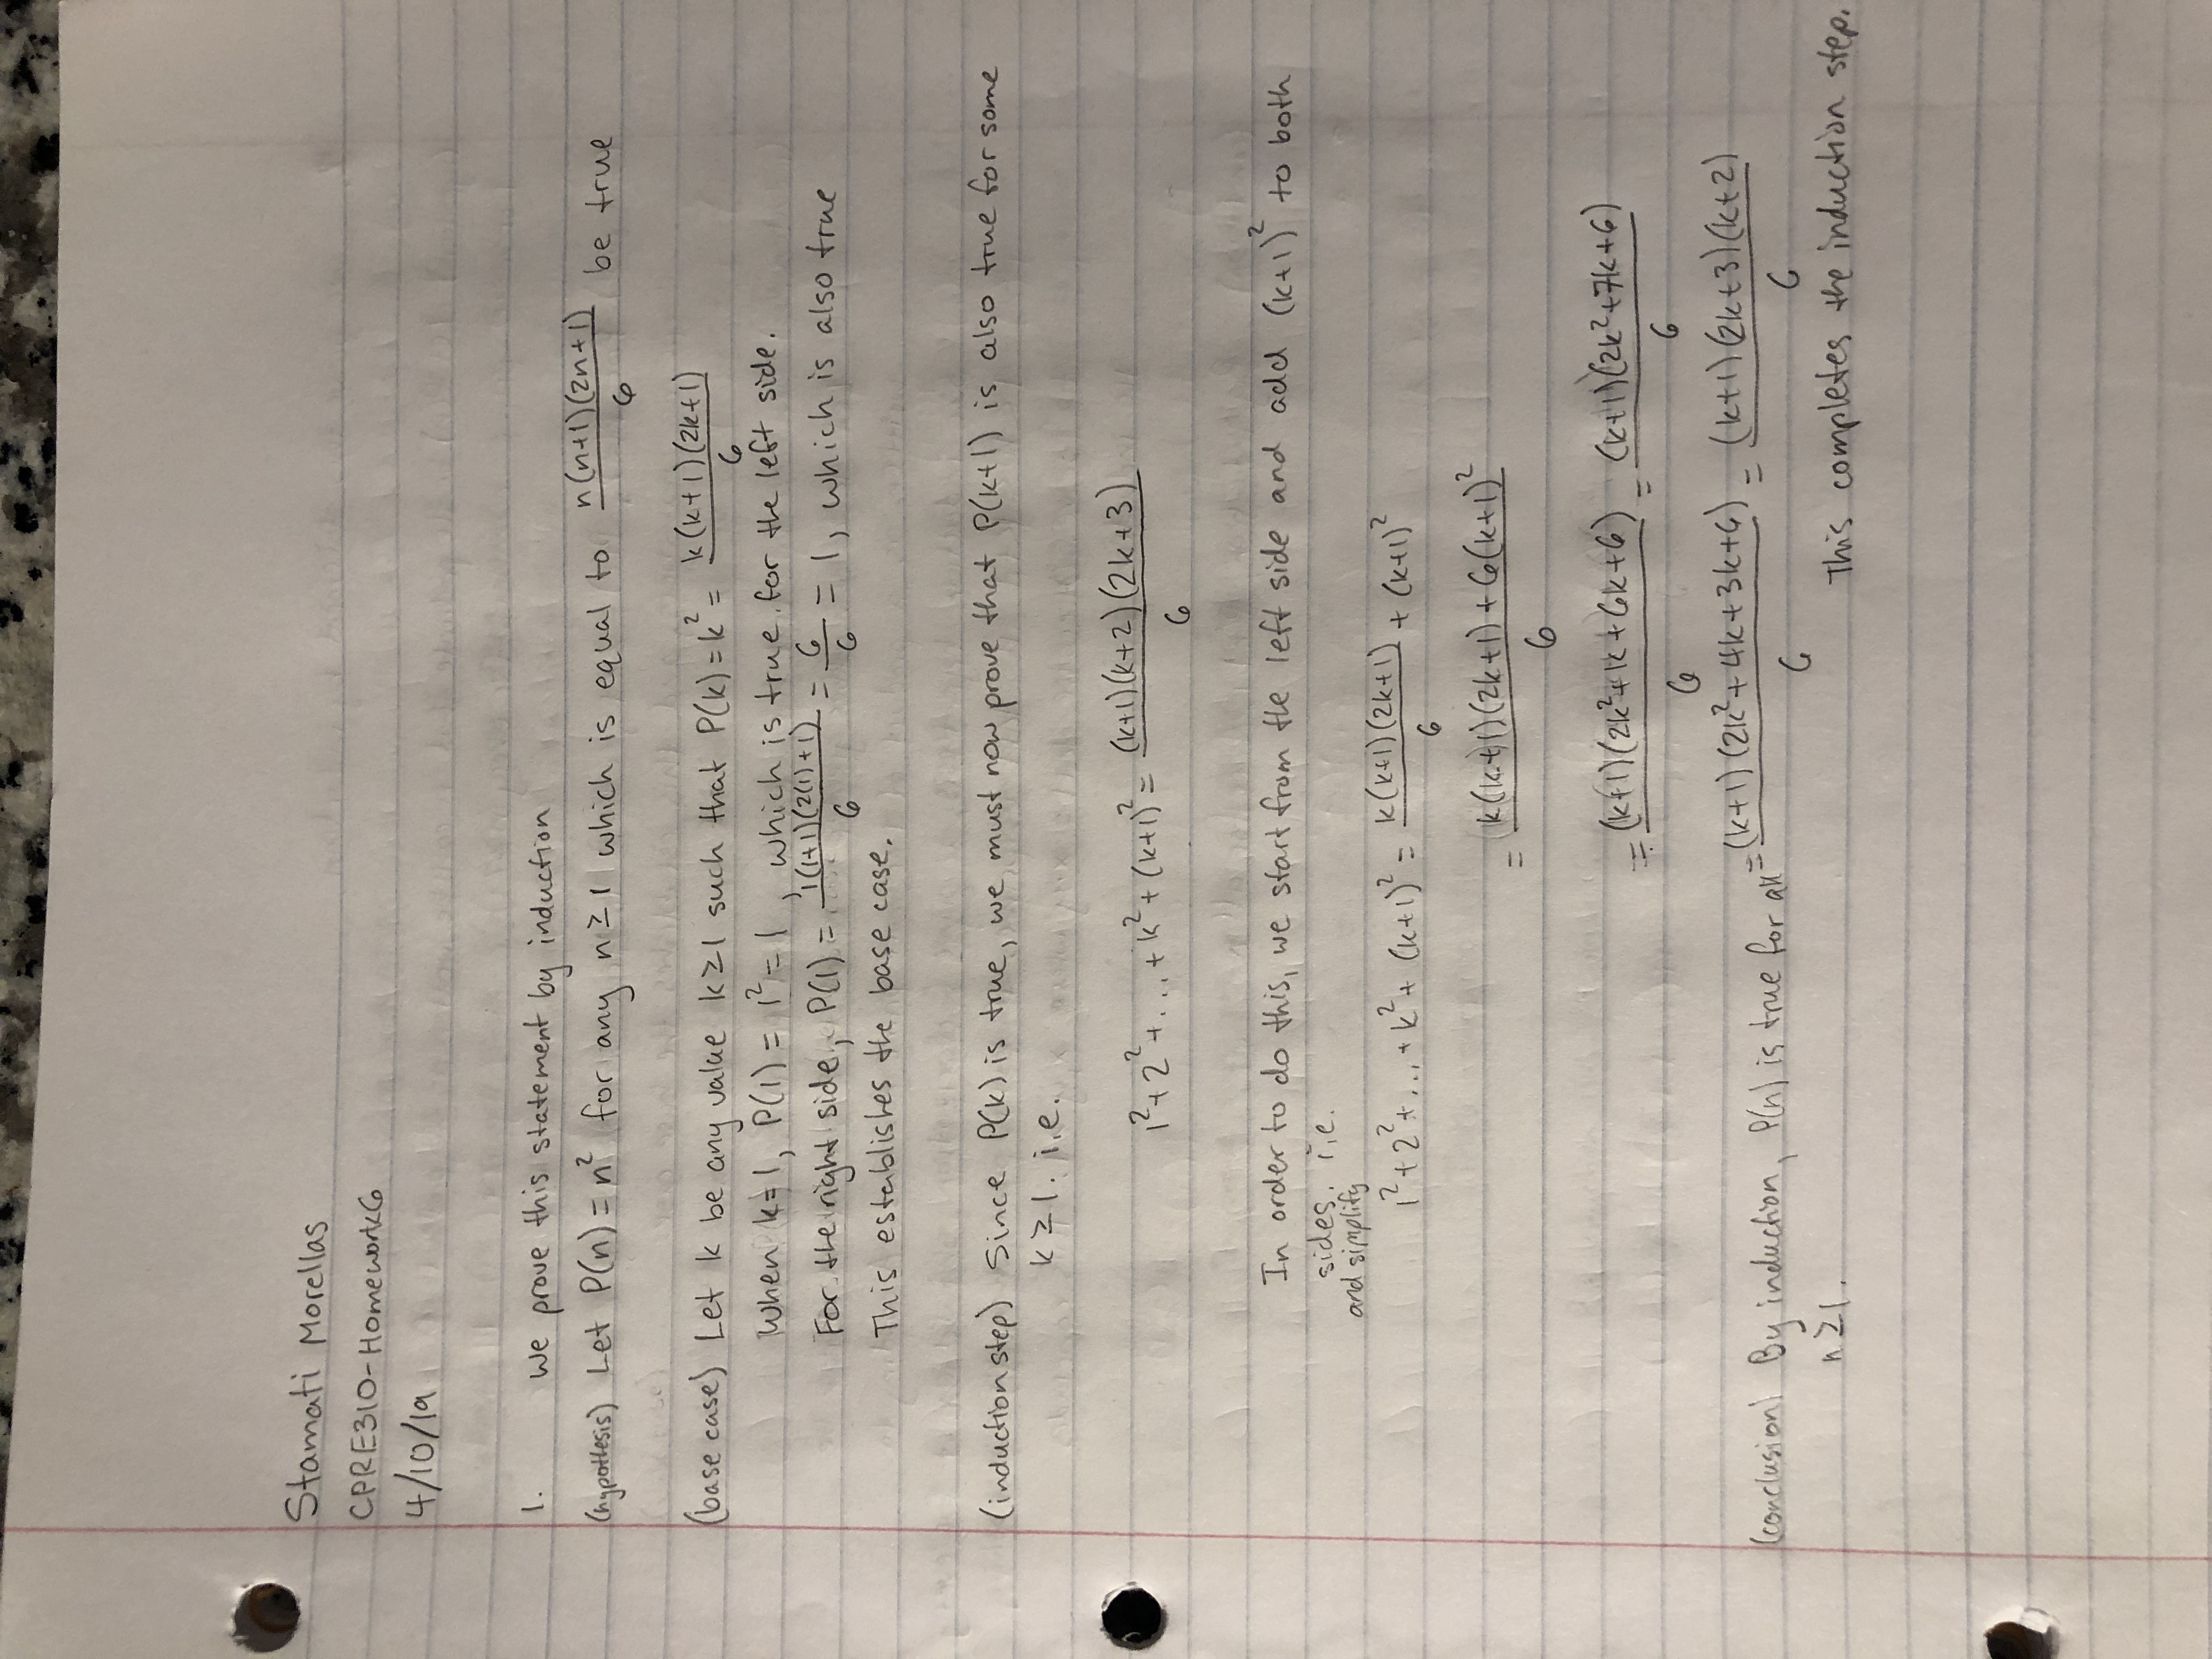 Stamati Morellas
CPRE310-Homework6
4/10/19
1. We prove this statement by induction
(hypothesis) Let P(n) = n² for any n ≥ 1 which is equal to n(n+1)(2n+1)/6 be true
(base case) Let k be any value k ≥ 1 such that P(k) = k² = k(k+1)(2k+1)/6
When k=1, P(1) = 1² = 1, which is true for the left side.
For the right side, P(1) = 1(1+1)(2(1)+1)/6 = 6/6 = 1, which is also true
This establishes the base case.
(induction step) Since P(k) is true, we must now prove that P(k+1) is also true for some
k ≥ 1. i.e.
1² + 2² + ... + k² + (k+1)² = (k+1)(k+2)(2k+3)/6
In order to do this, we start from the left side and add (k+1)² to both
sides. i.e.
and simplify
1² + 2² + ... + k² + (k+1)² = k(k+1)(2k+1)/6 + (k+1)²
= k(k+1)(2k+1) + 6(k+1)²/6
= (k+1)(2k²+k+6k+6)/6 = (k+1)(2k²+7k+6)/6
= (k+1)(2k²+4k+3k+6)/6 = (k+1)(2k+3)(k+2)/6
(conclusion) By induction, P(n) is true for all
n ≥ 1.
This completes the induction step.